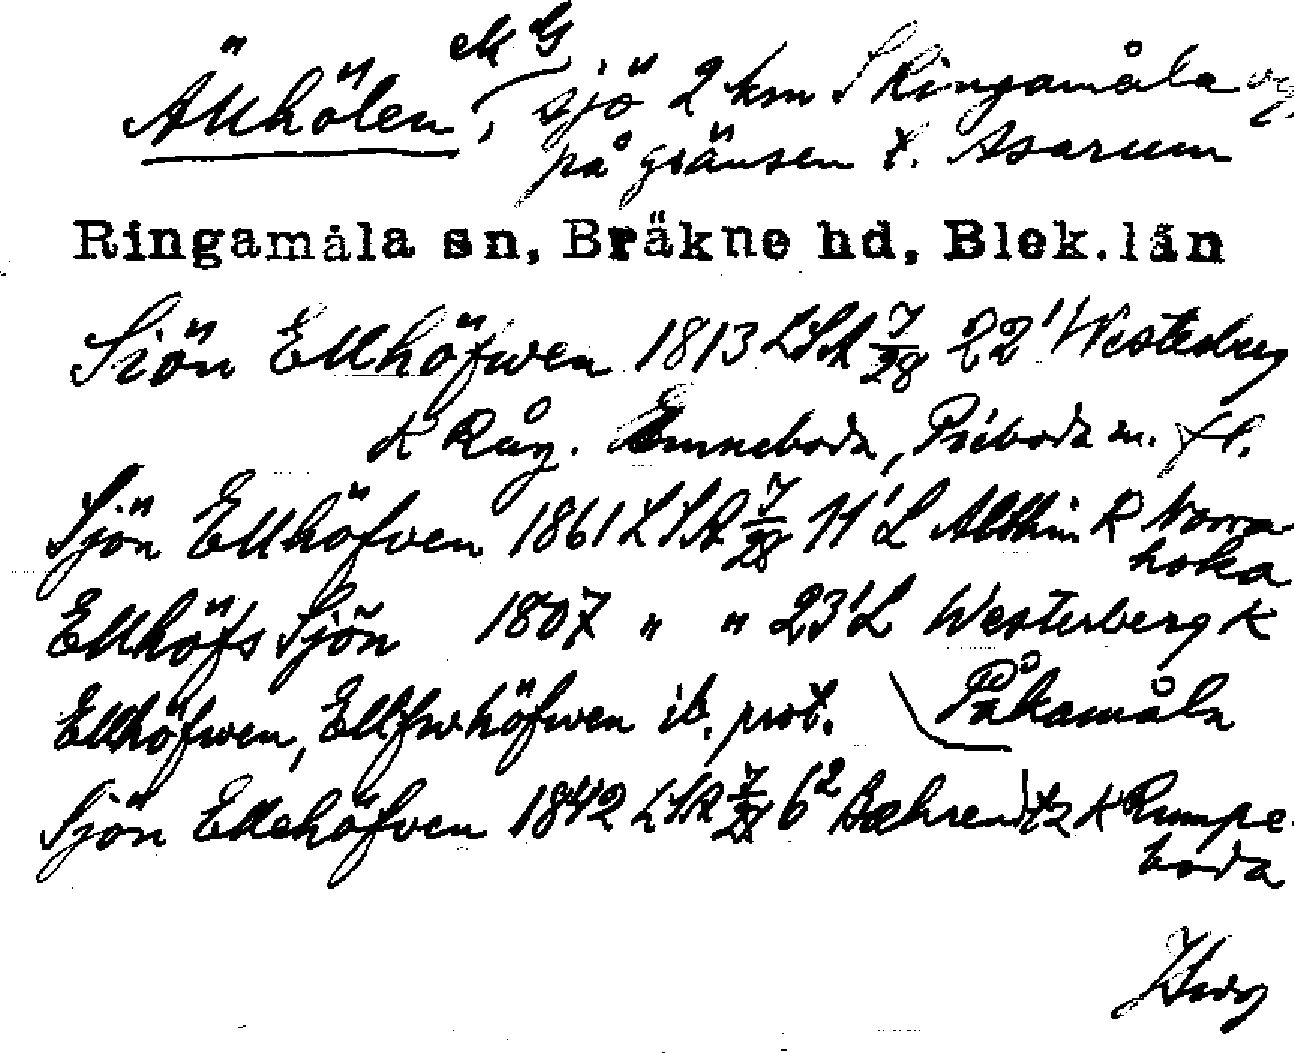 Ällhölen, sjö 2 km S Ringamåla
på gränsen t. Asarum
Ringamåla sn, Bräkne hd, Blek.län
Siön Ellhöfwen 1813 LSA 7/28 22' Westerberg
K Råg. Emneboda, Priboda m. fl.
Sjön Ellhöfven 1861 LSA 7/28 11' L Ahlthin K Norra
hoka
Ellhöfs Sjön 1807 " " 23' L Westerberg K
Påkamåla
Ellhöfwen, Ellfwhöfwen ib. prot.
Sjön Ellehöfven 1842 LSA 6² Bæhrentz K Rumpe-
boda